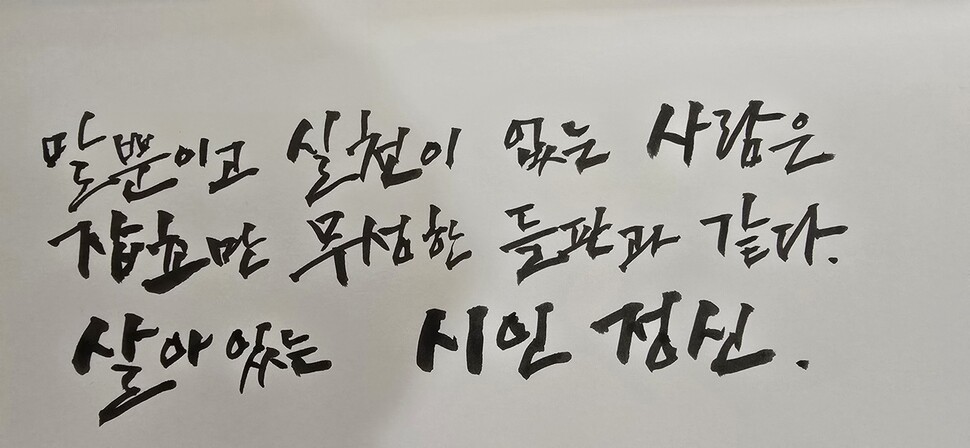 말뿐이고 실천이 없는 사람은
잡초만 무성한 들판과 같다.
살아있는 시인 정신.